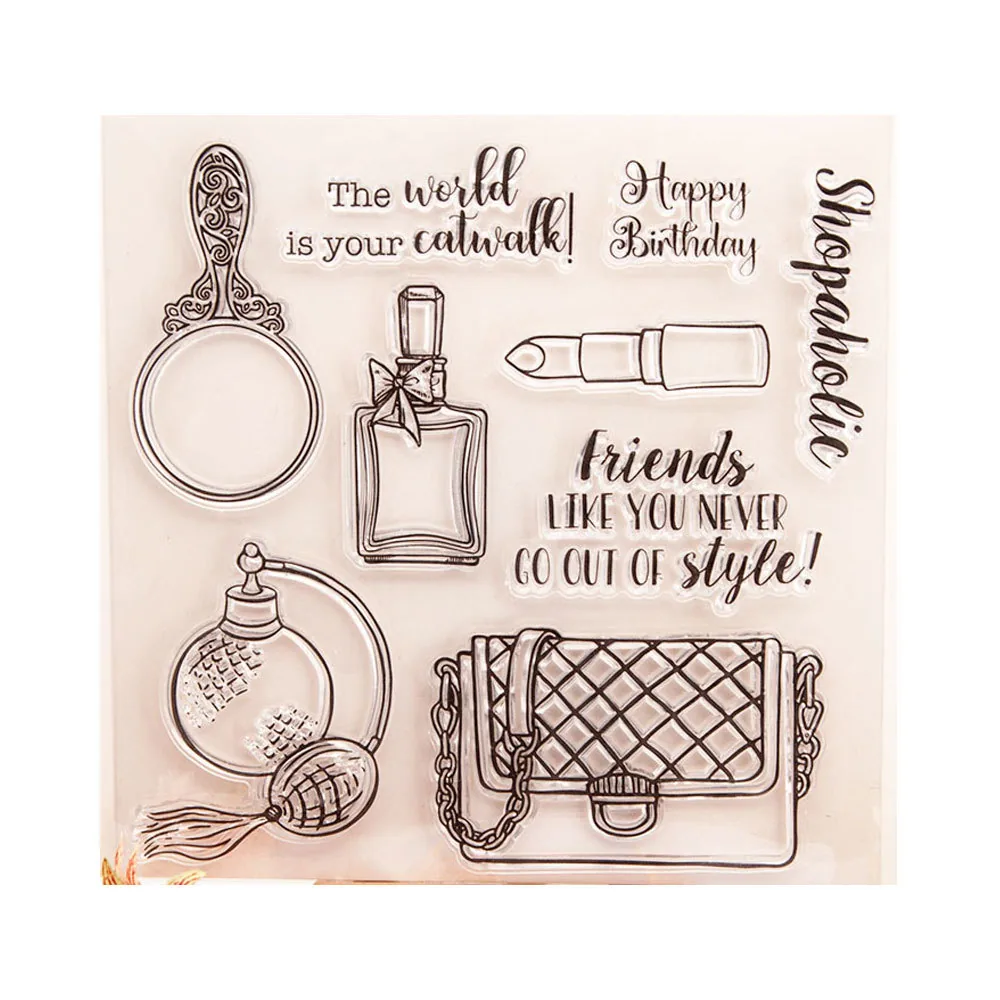 The world
is your catwalk!
Happy
Birthday
Shopaholic
Friends
LIKE YOU NEVER
GO OUT OF style!